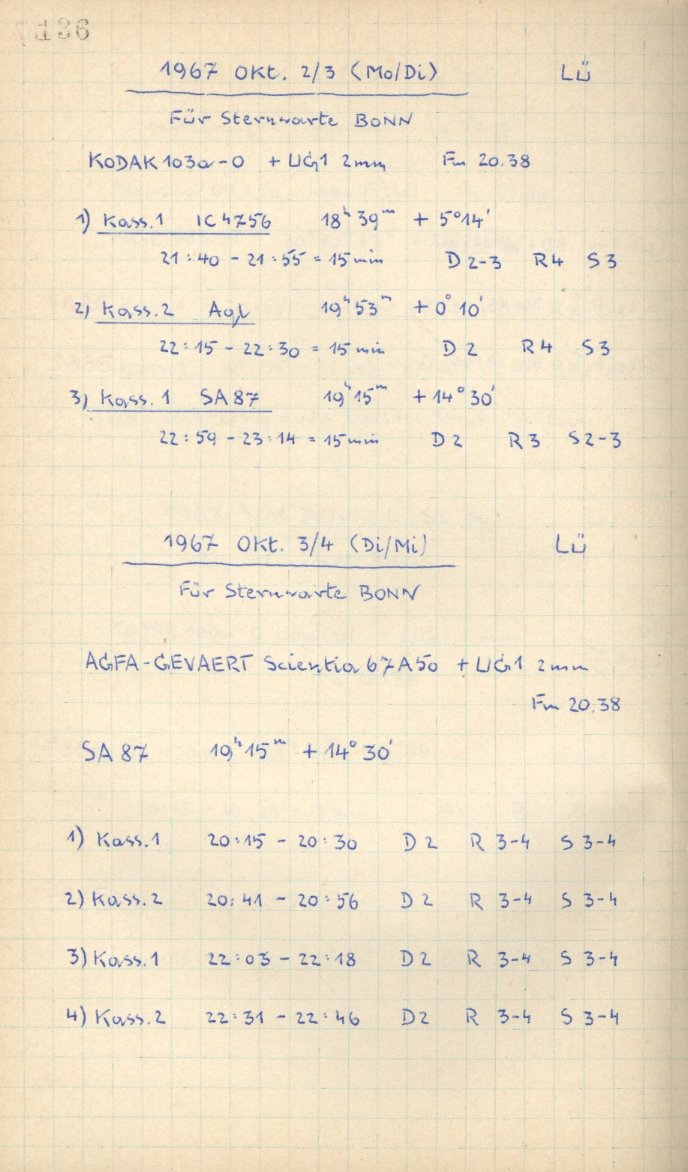 136
1967 Okt. 2/3 (Mo/Di) LÜ
Für Sternwarte BONN
KODAK 103a-O + UG1 2mm Fm 20.38
1) Kass. 1 IC 4756 18h 39m + 5° 14'
21:40 - 21:55 = 15 min D 2-3 R4 S3
2) Kass. 2 Aql 19h 53m + 0° 10'
22:15 - 22:30 = 15 min D 2 R4 S3
3) Kass. 1 SA 87 19h 15m + 14° 30'
22:59 - 23:14 = 15 min D 2 R3 S2-3
1967 Okt. 3/4 (Di/Mi) LÜ
Für Sternwarte BONN
AGFA-GEVAERT Scientia 67A50 + UG1 2mm
Fm 20.38
SA 87 19h 15m + 14° 30'
1) Kass. 1 20:15 - 20:30 D 2 R 3-4 S 3-4
2) Kass. 2 20:41 - 20:56 D 2 R 3-4 S 3-4
3) Kass. 1 22:03 - 22:18 D 2 R 3-4 S 3-4
4) Kass. 2 22:31 - 22:46 D 2 R 3-4 S 3-4